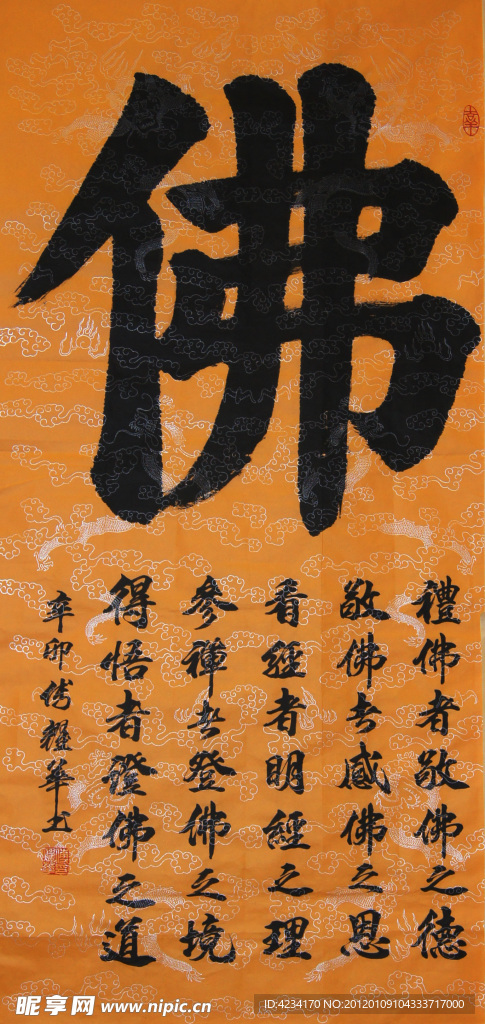 佛
禮佛者敬佛之德
敬佛者感佛之恩
看經者明經之理
參禪者登佛之境
得悟者證佛之道
辛卯傅耀華书
昵享网 www.nipic.cn
ID:4234170 NO:20120109104333717000